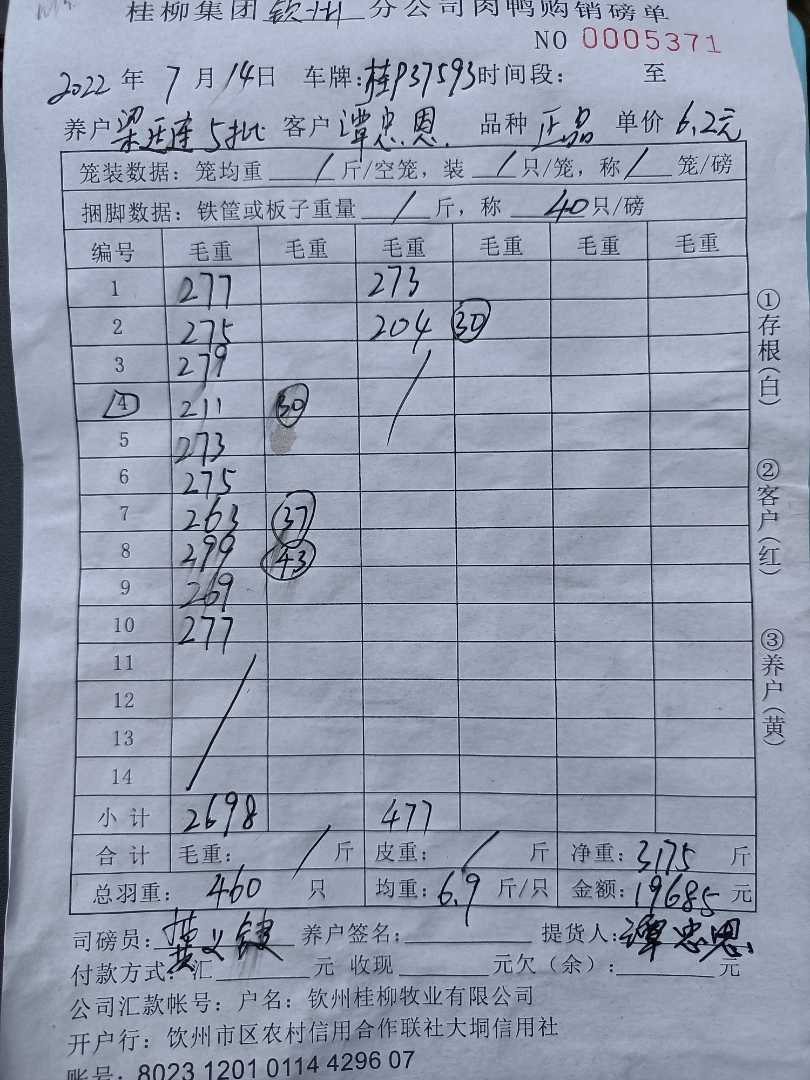 桂柳集团钦州分公司肉鸭购销磅单
NO 0005371
2022 年 7 月 14 日 车牌:桂P37593 时间段: 至
养户 梁廷连 5批 客户 谭忠恩 品种 正品 单价 6.2元
笼装数据: 笼均重 / 斤/空笼, 装 / 只/笼, 称 / 笼/磅
捆脚数据: 铁筐或板子重量 / 斤, 称 40 只/磅
编号 毛重 毛重 毛重 毛重 毛重 毛重
1 277 273
2 275 204 30
3 279 /
4 211 30
5 273
6 275
7 263 37
8 299 43
9 269
10 277
11 /
12
13
14
小计 2698 477
合计 毛重: / 斤 皮重: / 斤 净重: 3175 斤
总羽重: 460 只 均重: 6.9 斤/只 金额: 19685 元
司磅员: 黄义 养户签名: 提货人: 谭忠恩
付款方式: 汇 元 收现 元欠(余): 元
公司汇款帐号: 户名: 钦州桂柳牧业有限公司
开户行: 钦州市区农村信用合作联社大垌信用社
账号: 8023 1201 0114 4296 07
①存根(白)
②客户(红)
③养户(黄)